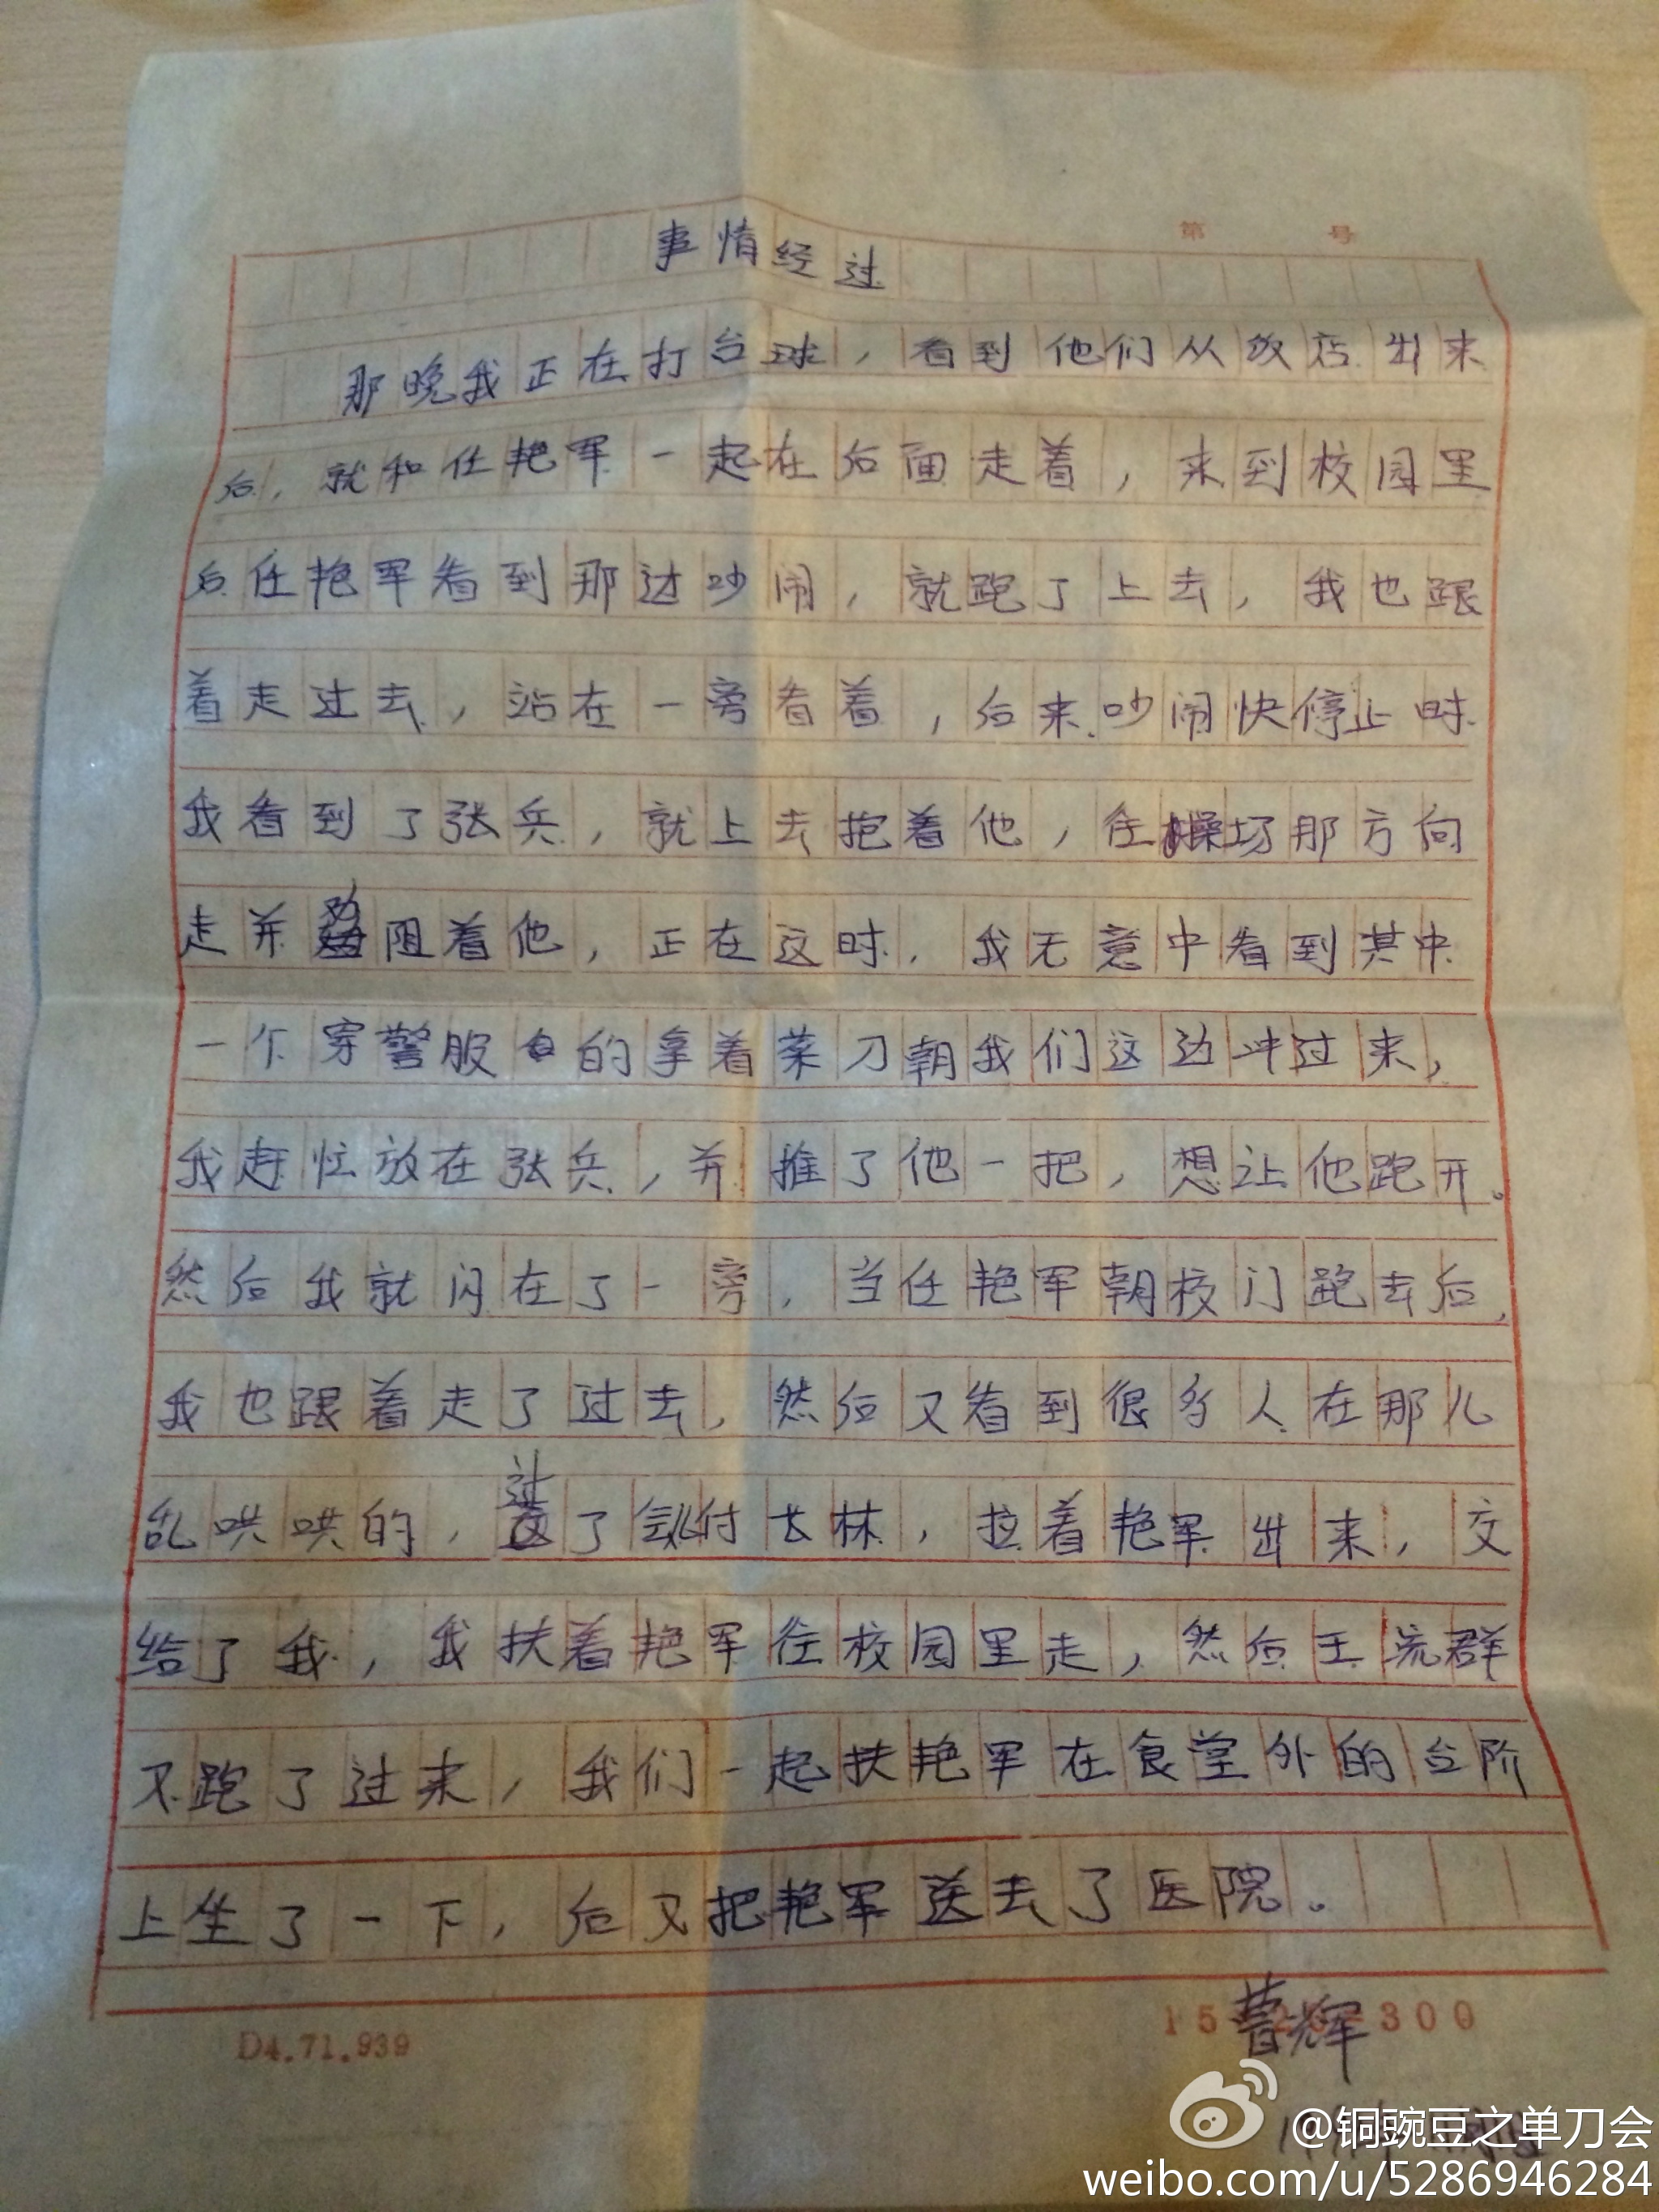 第 号
事情经过
那晚我正在打台球，看到他们从放店出来
后，就和任艳军一起在后面走着，来到校园里
后任艳军看到那边吵闹，就跑了上去，我也跟
着走过去，站在一旁看着，后来吵闹快停止时
我看到了张兵，就上去抱着他，往操场那方向
走并劝阻着他，正在这时，我无意中看到其中
一个穿警服的拿着菜刀朝我们这边冲过来，
我赶忙放在张兵，并推了他一把，想让他跑开。
然后我就闪在了一旁，当任艳军朝校门跑去后，
我也跟着走了过去，然后又看到很多人在那儿
乱哄哄的，过了会儿付长林，拉着艳军出来，交
给了我，我扶着艳军往校园里走，然后王流群
又跑了过来，我们一起扶艳军在食堂外的台阶
上坐了一下，后又把艳军送去了医院。
D4.71.939
15 300
曹辉
@铜豌豆之单刀会
weibo.com/u/5286946284